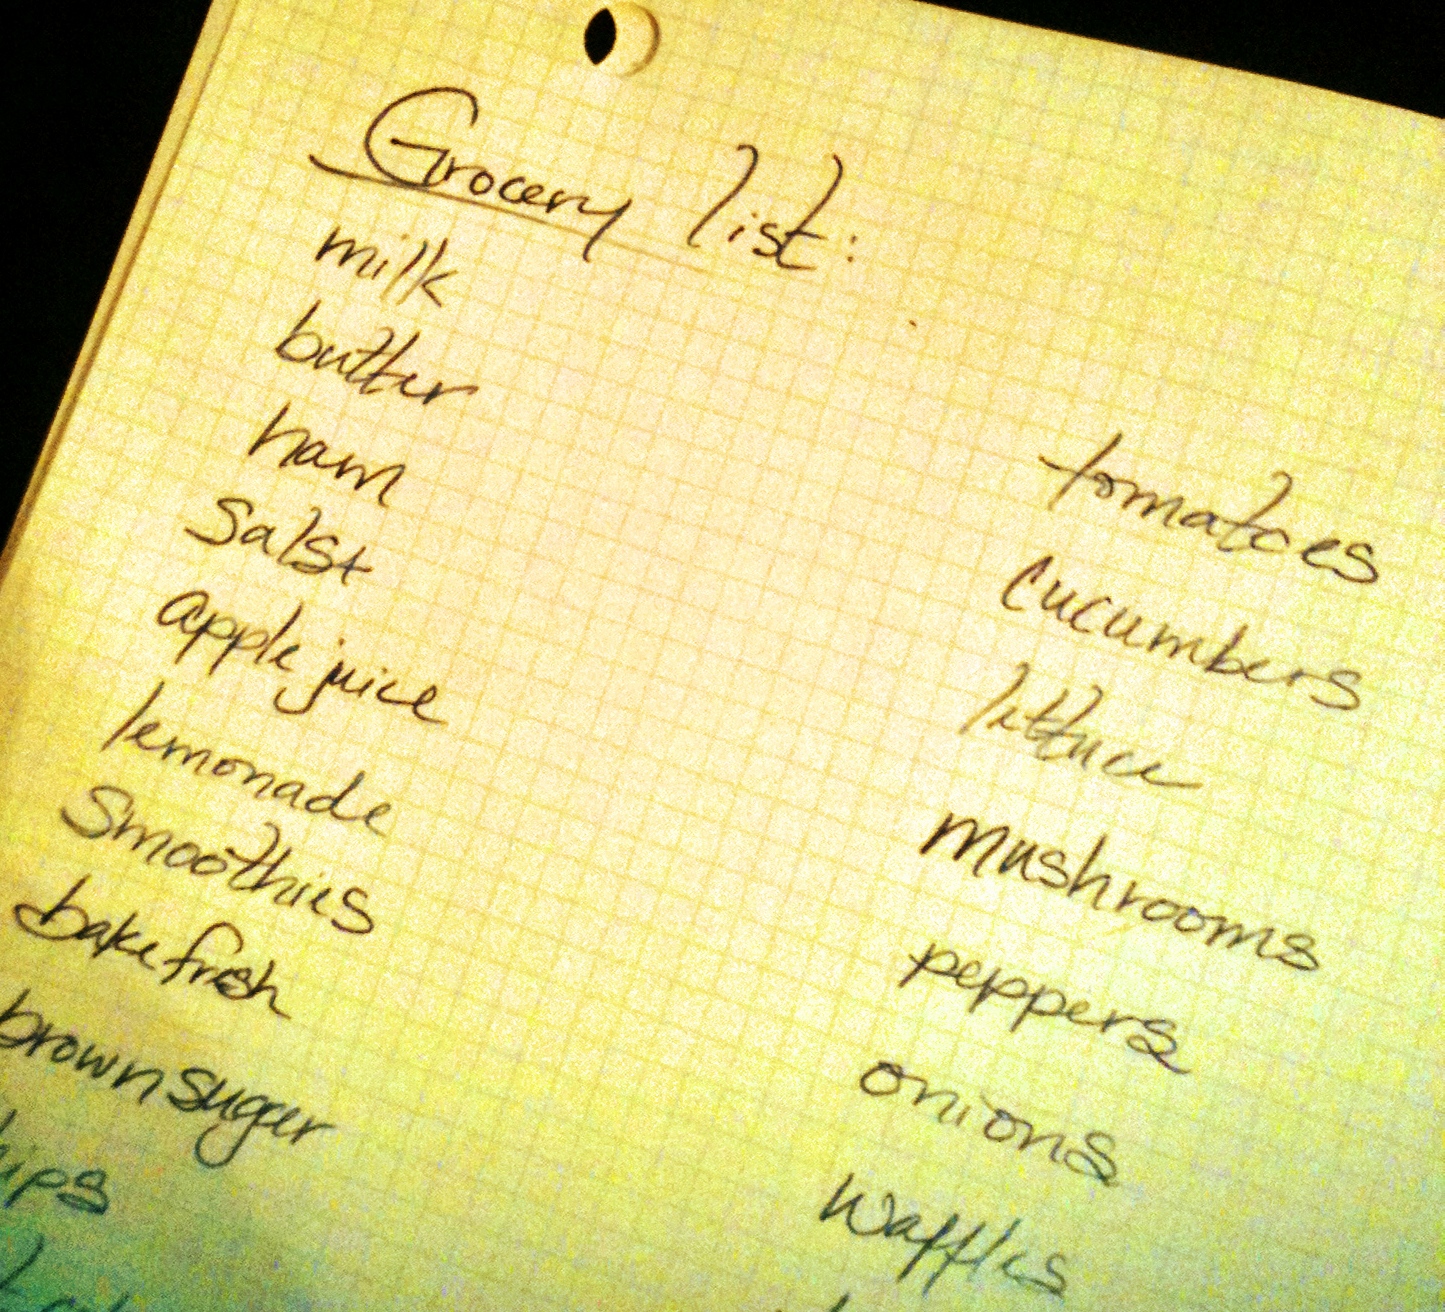 Grocery list:
milk
butter
ham
Salsa
apple juice
lemonade
Smoothies
bake fresh
brown sugar
tomatoes
cucumbers
lettuce
mushrooms
peppers
onions
Waffles